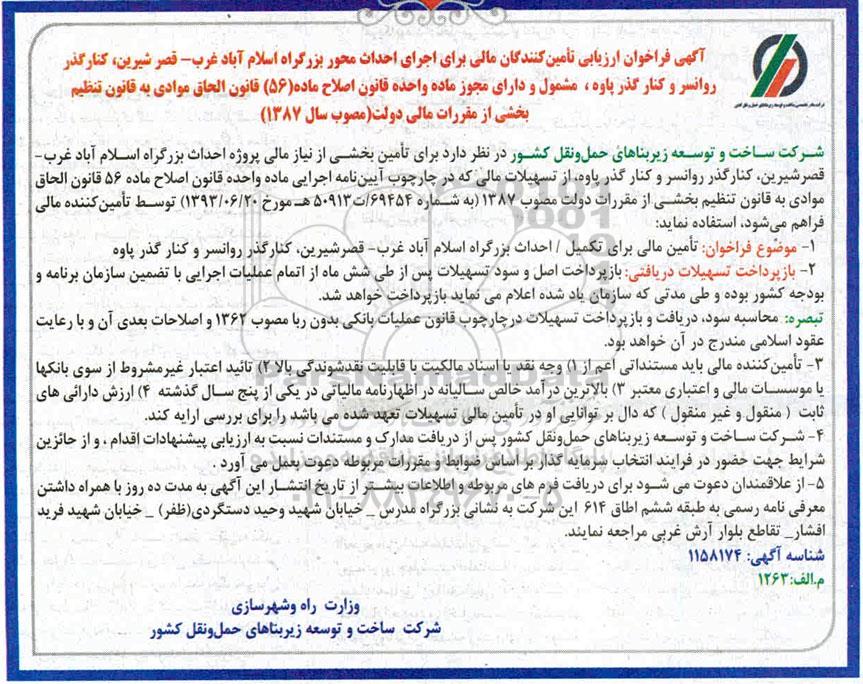 آگهی فراخوان ارزیابی تأمین‌کنندگان مالی برای اجرای احداث محور بزرگراه اسلام آباد غرب- قصر شیرین، کنارگذر
روانسر و کنار گذر پاوه ، مشمول و دارای مجوز ماده واحده قانون اصلاح ماده(۵۶) قانون الحاق موادی به قانون تنظیم
بخشی از مقررات مالی دولت(مصوب سال ۱۳۸۷)
شرکت ساخت و توسعه زیربناهای حمل‌ونقل کشور در نظر دارد برای تأمین بخشی از نیاز مالی پروژه احداث بزرگراه اسلام آباد غرب-
قصرشیرین، کنارگذر روانسر و کنار گذر پاوه، از تسهیلات مالی که در چارچوب آیین‌نامه اجرایی ماده واحده قانون اصلاح ماده ۵۶ قانون الحاق
موادی به قانون تنظیم بخشی از مقررات دولت مصوب ۱۳۸۷ (به شماره ۶۹۴۵۴/ت۵۰۹۱۳ هـ مورخ ۱۳۹۳/۰۶/۲۰) توسط تأمین‌کننده مالی
فراهم می‌شود، استفاده نماید:
۱- موضوع فراخوان: تأمین مالی برای تکمیل / احداث بزرگراه اسلام آباد غرب- قصرشیرین، کنارگذر روانسر و کنار گذر پاوه
۲- بازپرداخت تسهیلات دریافتی: بازپرداخت اصل و سود تسهیلات پس از طی شش ماه از اتمام عملیات اجرایی با تضمین سازمان برنامه و
بودجه کشور بوده و طی مدتی که سازمان یاد شده اعلام می نماید بازپرداخت خواهد شد.
تبصره: محاسبه سود، دریافت و بازپرداخت تسهیلات درچارچوب قانون عملیات بانکی بدون ربا مصوب ۱۳۶۲ و اصلاحات بعدی آن و با رعایت
عقود اسلامی مندرج در آن خواهد بود.
۳- تأمین‌کننده مالی باید مستنداتی اعم از ۱) وجه نقد یا اسناد مالکیت با قابلیت نقدشوندگی بالا ۲) تائید اعتبار غیرمشروط از سوی بانکها
یا موسسات مالی و اعتباری معتبر ۳) بالاترین درآمد خالص سالیانه در اظهارنامه مالیاتی در یکی از پنج سال گذشته ۴) ارزش دارائی های
ثابت ( منقول و غیر منقول ) که دال بر توانایی او در تأمین مالی تسهیلات تعهد شده می باشد را برای بررسی ارایه کند.
۴- شرکت ساخت و توسعه زیربناهای حمل‌ونقل کشور پس از دریافت مدارک و مستندات نسبت به ارزیابی پیشنهادات اقدام ، و از حائزین
شرایط جهت حضور در فرایند انتخاب سرمایه گذار بر اساس ضوابط و مقررات مربوطه دعوت بعمل می آورد .
۵- از علاقمندان دعوت می شود برای دریافت فرم های مربوطه و اطلاعات بیشتر از تاریخ انتشار این آگهی به مدت ده روز با همراه داشتن
معرفی نامه رسمی به طبقه ششم اطاق ۶۱۴ این شرکت به نشانی بزرگراه مدرس _ خیابان شهید وحید دستگردی(ظفر) _ خیابان شهید فرید
افشار_ تقاطع بلوار آرش غربی مراجعه نمایند.
شناسه آگهی: ۱۱۵۸۱۷۴
م.الف:۱۲۶۳
وزارت راه وشهرسازی
شرکت ساخت و توسعه زیربناهای حمل‌ونقل کشور